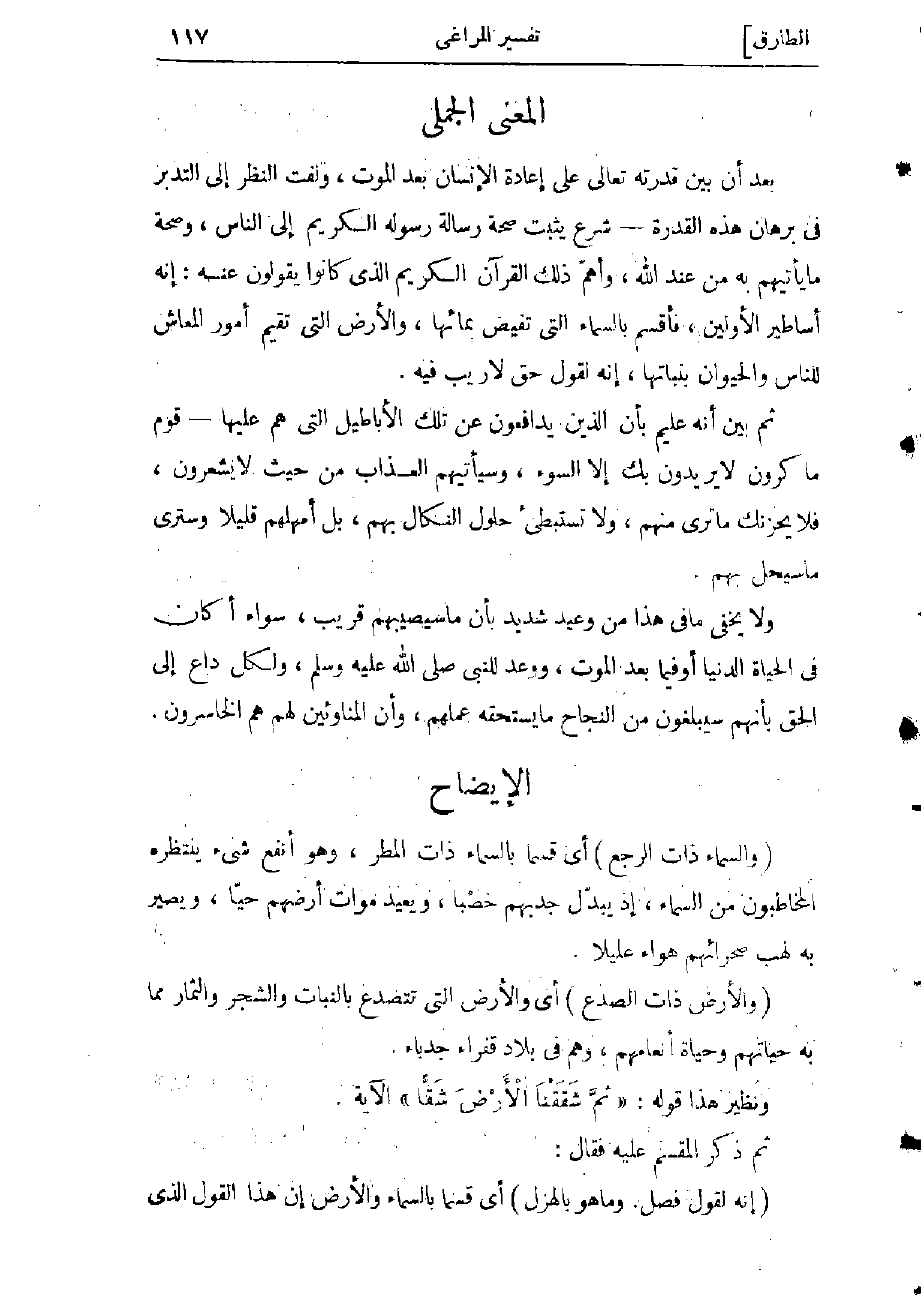 الطارق] تفسير المراغى ١١٧
المعنى الجملى
بعد أن بين قدرته تعالى على إعادة الإنسان بعد الموت ، ولفت النظر إلى التدبر
فى برهان هذه القدرة — شرع يثبت صحة رسالة رسوله الكريم إلى الناس ، وصحة
مايأتيهم به من عند الله ، وأهمّ ذلك القرآن الكريم الذى كانوا يقولون عنه : إنه
أساطير الأولين ، فأقسم بالسماء التى تفيض بمائها ، والأرض التى تقيم أمور المعاش
للناس والحيوان بنباتها ، إنه لقول حق لاريب فيه .
ثم بين أنه عليم بأن الذين يدافعون عن تلك الأباطيل التى هم عليها — قوم
ماكرون لايريدون بك إلا السوء ، وسيأتيهم العذاب من حيث لايشعرون ،
فلا يحزنك ماترى منهم ، ولا تستبطئ حلول النكال بهم ، بل أمهلهم قليلا وسترى
ماسيحل بهم .
ولا يخفى مافى هذا من وعيد شديد بأن ماسيصيبهم قريب ، سواء أكان
فى الحياة الدنيا أوفيما بعد الموت ، ووعد للنبى صلى الله عليه وسلم ، ولكل داع إلى
الحق بأنهم سيبلغون من النجاح مايستحقه عملهم ، وأن المناوئين لهم هم الخاسرون .
الإيضاح
( والسماء ذات الرجع ) أى قسما بالسماء ذات المطر ، وهو أنفع شىء ينتظره
المخاطبون من السماء ، إذ يبدّل جدبهم خصْبا ، ويعيد موات أرضهم حيّا ، ويصير
به لهب صحرائهم هواء عليلا .
( والأرض ذات الصدع ) أى والأرض التى تتصدع بالنبات والشجر والثمار مما
به حياتهم وحياة أنعامهم ، وهم فى بلاد قفراء جدباء .
ونظير هذا قوله : « ثُمَّ شَقَقْنَا الْأَرْضَ شَقًّا » الآية .
ثم ذكر المقسم عليه فقال :
( إنه لقول فصل. وماهو بالهزل ) أى قسما بالسماء والأرض إن هذا القول الذى